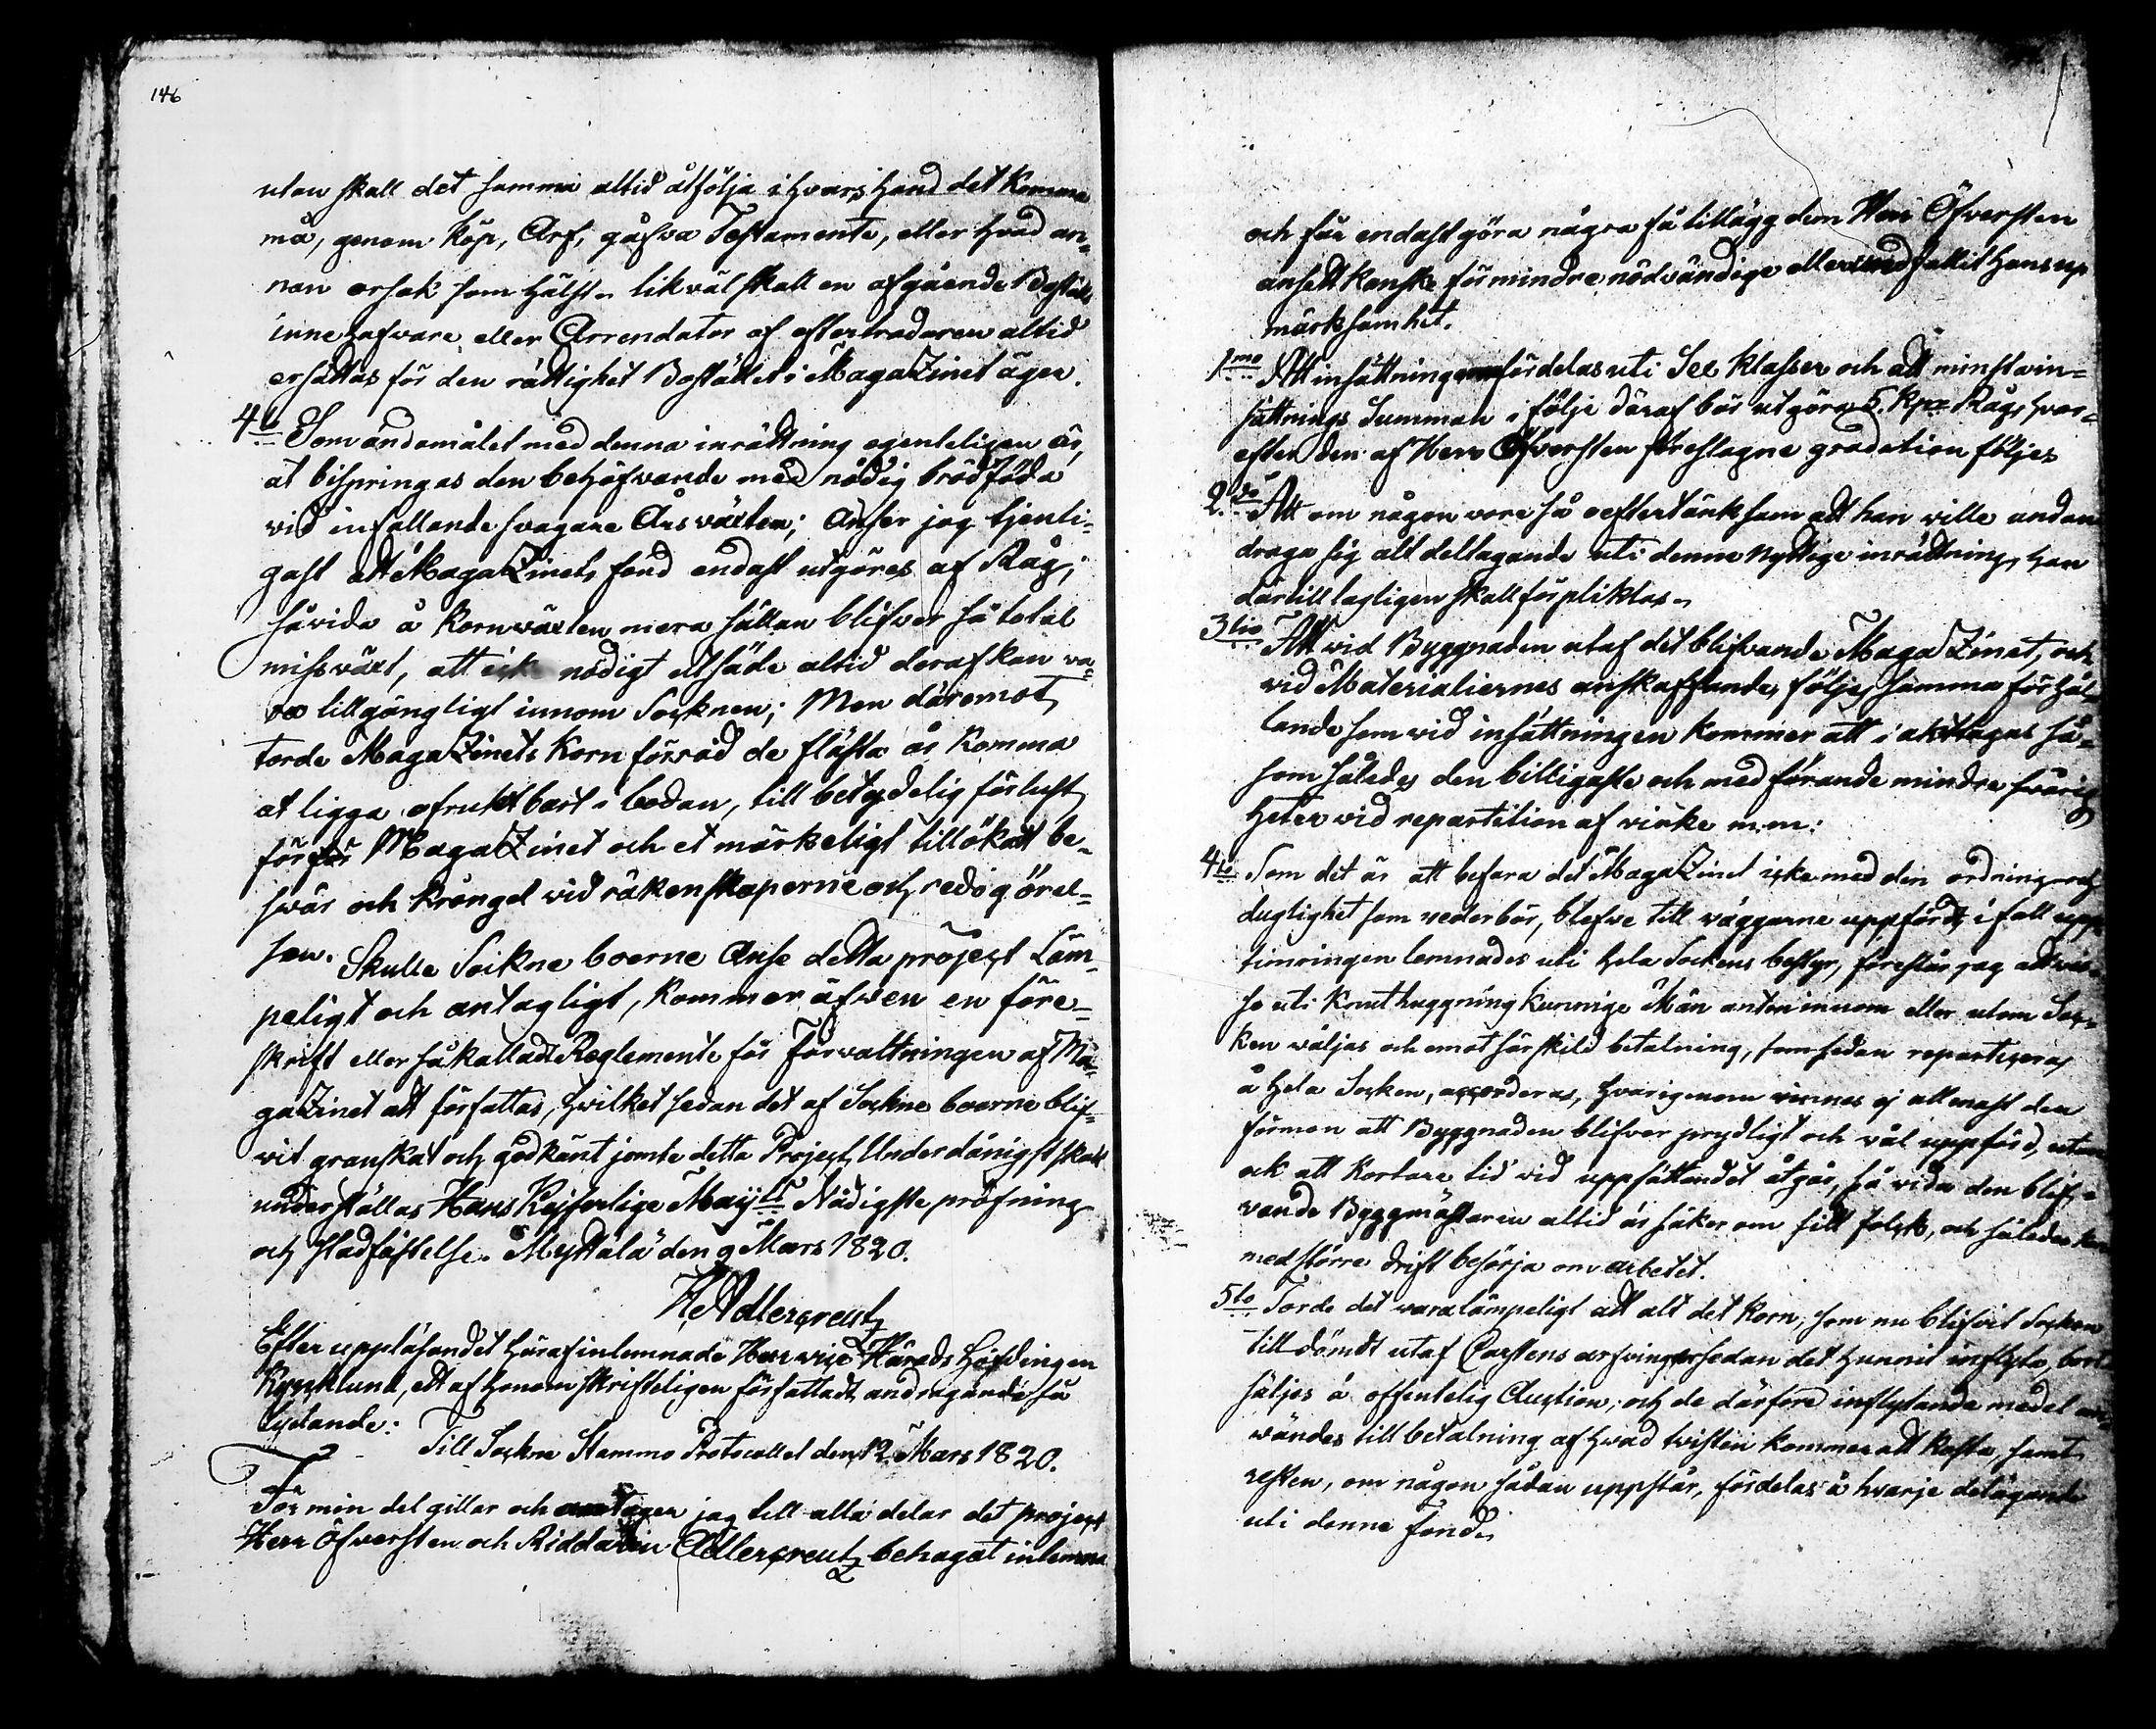 146
utan skall det samma altid åtfölja i hvars hand det komma
må, genom köp, Arf, gåfwa Testamente, eller hvad an¬
nan orsak som hälst. likväl skall en afgående Boställs
innehafvare eller Arrendator af efterträdaren altid
ersättas för den rättighet Bostället i MagaZinet äger.
4to Som ändamålet med denna inrättning egenteligen är,
at bispringas den behöfwande med nödig brödföda
vid infallande svagare Årsväxten; Anser jag tjenli¬
gast att MagaZinets fond endast utgöres af Råg,
såvida å Kornväxten mera sällan blifver så total
missväxt, att icke nödigt utsäde altid deraf kan va¬
ra tillgängligt innom Socknen; Men däremot
torde MagaZinets Korn förråd de flästa år komma
at ligga ofruktbart i bodan, till betydelig förlust
för MagaZinet och et märkeligt tillökat be¬
svär och krångel vid räkenskaperne och redogörel¬
sen. Skulle Sockne boerne Anse detta project Läm¬
peligt och antagligt, kommer äfwen en före¬
skrift eller så kallad Reglemente för Förvaltningen af Ma¬
gaZinet att författas, hwilket sedan det af Sockne boerne blif¬
vit granskat och godkänt jemte detta Project Underdånigst skall
underställas Hans Kejserlige Maijts Nådigste pröfning
och stadfästelse. Myttälä den 9 Mars 1820.
H Adlercreutz
Efter uppläsandet häraf inlemnade Herr vice Härads Höfdingen
Kyncklund, ett af honom skrifteligen författadt andragande så
lydande:
Till Sockne Stemmo Protocollet den 12 Mars 1820.
För min del gillar och antager jag till alla delar det project
Herr Öfversten och Riddaren Adlercreutz behagat inlemna
och får endast göra några få tillägg dem Herr Öfversten
ansedt kanske för mindre nödvändige eller undfallit Hans up
märksamhet.
1mo Att insättningen fördelas uti Sex klasser och att minsta in¬
sättnings Summan i följe däraf bör utgöra 5 Kpr Råg, hvar¬
efter den af Herr Öfversten föreslagne gradation följes
2do Att om någon vore så oeftertänksam att han wille undan
draga sig alt deltagande uti denne nyttige inrättning, han
därtill lagligen skall förpliktas.
3tio Att vid Byggnaden utaf det blifvande MagaZinet, och
vid Materialiernes anskaffande, följes samma förhål¬
lande som vid insättningen kommer att i akttagas så¬
som således den billigaste och medförande mindre svårig
heter vid repartition af virke m:m:
4to Som det är att befara det MagaZinet icke med den ordning och
duglighet som vederbör, blefve till väggarne uppfördt, i fall upp
timringen lemnades uti hela Sockens bestyr, föreslår jag att vis¬
se uti Knuthuggning kunnige Män anten innom eller utom Soc¬
ken wäljas och emot särskild betalning, som sedan reparteras
å hela Socken, accorderas, hvarigenom vinnes ej allenast den
förmon att Byggnaden blifver prydligt och väl uppförd, utan
ock att kortare tid vid uppsättandet åtgår, så vida den blif¬
vande Byggmästaren altid är säker om sitt folck, och således kan
med större drift besörja om arbetet.
5to Torde det vara lämpeligt att alt det Korn, som nu blifvit Socken
till dömdt utaf Carstens arfvingar sedan det hunnit inflyta, bort
säljes å offentelig Auction, och de därföre inflytande medel an¬
vändes till betalning af hvad tvisten kommer att kosta, samt
resten, om någon sådan uppstår, fördelas å hvarje delägande
uti denne fond.